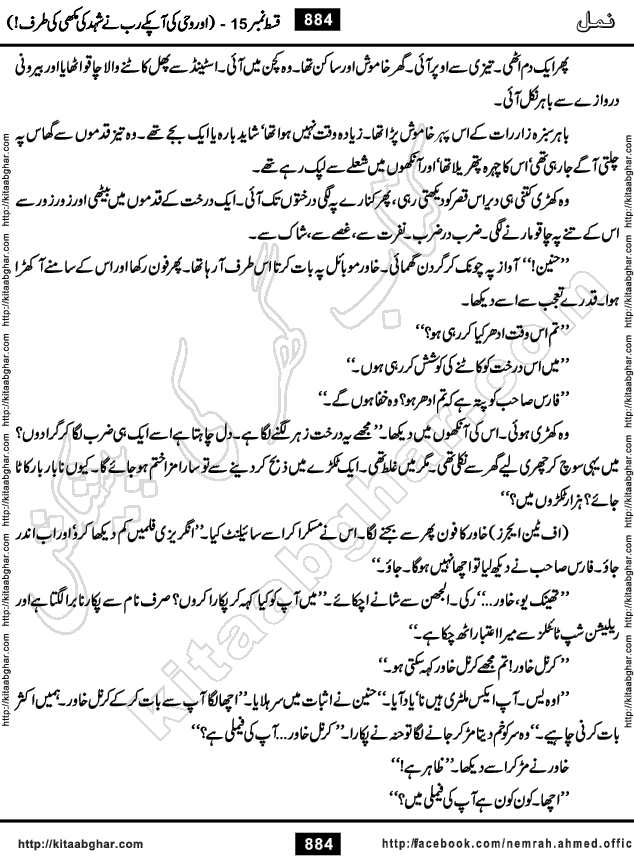 نمل 884 قسط نمبر 15 - (اور وحی کی آپکے رب نے شہد کی مکھی کی طرف!)
پھر ایک دم اٹھی۔ تیزی سے اوپر آئی۔ گھر خاموش اور ساکن تھا۔ وہ کچن میں آئی۔ اسٹینڈ سے پھل کاٹنے والا چاقو اٹھایا اور بیرونی
دروازے سے باہر نکل آئی۔
باہر سبزہ زار رات کے اس پہر خاموش پڑا تھا۔ زیادہ وقت نہیں ہوا تھا' شاید بارہ یا ایک بجے تھے۔ وہ تیز قدموں سے گھاس پہ
چلتی آگے جا رہی تھی' اس کا چہرہ پتھریلا تھا' اور آنکھوں میں شعلے سے لپک رہے تھے۔
وہ کھڑی کتنی ہی دیر اس قصر کو دیکھتی رہی، پھر کنارے پہ لگی درختوں تک آئی۔ ایک درخت کے قدموں میں بیٹھی اور زور زور سے
اس کے تنے پہ چاقو مارنے لگی۔ ضرب در ضرب۔ نفرت سے، غصے سے، شاک سے۔
’’حنین!‘‘ آواز پہ چونک کر گردن گھمائی۔ خاور موبائل پہ بات کرتا اس طرف آ رہا تھا۔ پھر فون رکھا اور اس کے سامنے آ کھڑا
ہوا۔ قدرے تعجب سے اسے دیکھا۔
’’تم اس وقت ادھر کیا کر رہی ہو؟‘‘
’’میں اس درخت کو کاٹنے کی کوشش کر رہی ہوں۔‘‘
’’فارس صاحب کو پتہ ہے کہ تم ادھر ہو؟ وہ خفا ہوں گے۔‘‘
وہ کھڑی ہوئی۔ اس کی آنکھوں میں دیکھا۔ ’’مجھے یہ درخت زہر لگنے لگا ہے۔ دل چاہتا ہے اسے ایک ہی ضرب لگا کر گرا دوں؟
میں یہی سوچ کر چھری لیے گھر سے نکلی تھی۔ مگر میں غلط تھی۔ ایک ٹکڑے میں ذبح کر دینے سے تو سارا مزا ختم ہو جائے گا۔ کیوں نا بار بار کاٹا
جائے؟ ہزار ٹکڑوں میں؟‘‘
(اف ٹین ایجرز) خاور کا فون پھر سے بجنے لگا۔ اس نے مسکرا کر اسے سائیلنٹ کیا۔ ’’انگریزی فلمیں کم دیکھا کرو' اور اب اندر
جاؤ۔ فارس صاحب نے دیکھ لیا تو اچھا نہیں ہوگا۔ جاؤ۔‘‘
’’تھینک یو، خاور...‘‘ رکی۔ الجھن سے شانے اچکائے۔ ’’میں آپ کو کیا کہہ کر پکارا کروں؟ صرف نام سے پکارنا برا لگتا ہے اور
ریلیشن شپ ٹائٹلز سے میرا اعتبار اٹھ چکا ہے۔‘‘
’’کرنل خاور! تم مجھے کرنل خاور کہہ سکتی ہو۔‘‘
’’اوہ یس۔ آپ ایکس ملٹری ہیں نا' یاد آیا۔‘‘ حنین نے اثبات میں سر ہلایا۔ ’’اچھا لگا آپ سے بات کر کے کرنل خاور۔ ہمیں اکثر
بات کرنی چاہیے۔‘‘ وہ سر کو خم دیتا مڑ کر جانے لگا تو حنہ نے پکارا۔ ’’کرنل خاور... آپ کی فیملی ہے؟‘‘
خاور نے مڑ کر اسے دیکھا۔ ’’ظاہر ہے!‘‘
’’اچھا۔ کون کون ہے آپ کی فیملی میں؟‘‘
http://kitaabghar.com 884 http://facebook.com/nemrah.ahmed.offic
http://kitaabghar.com http://kitaabghar.com http://kitaabghar.com http://kitaabghar.com
http://kitaabghar.com http://kitaabghar.com http://kitaabghar.com http://kitaabghar.com
کتاب گھر کی پیشکش
kitaabghar.com